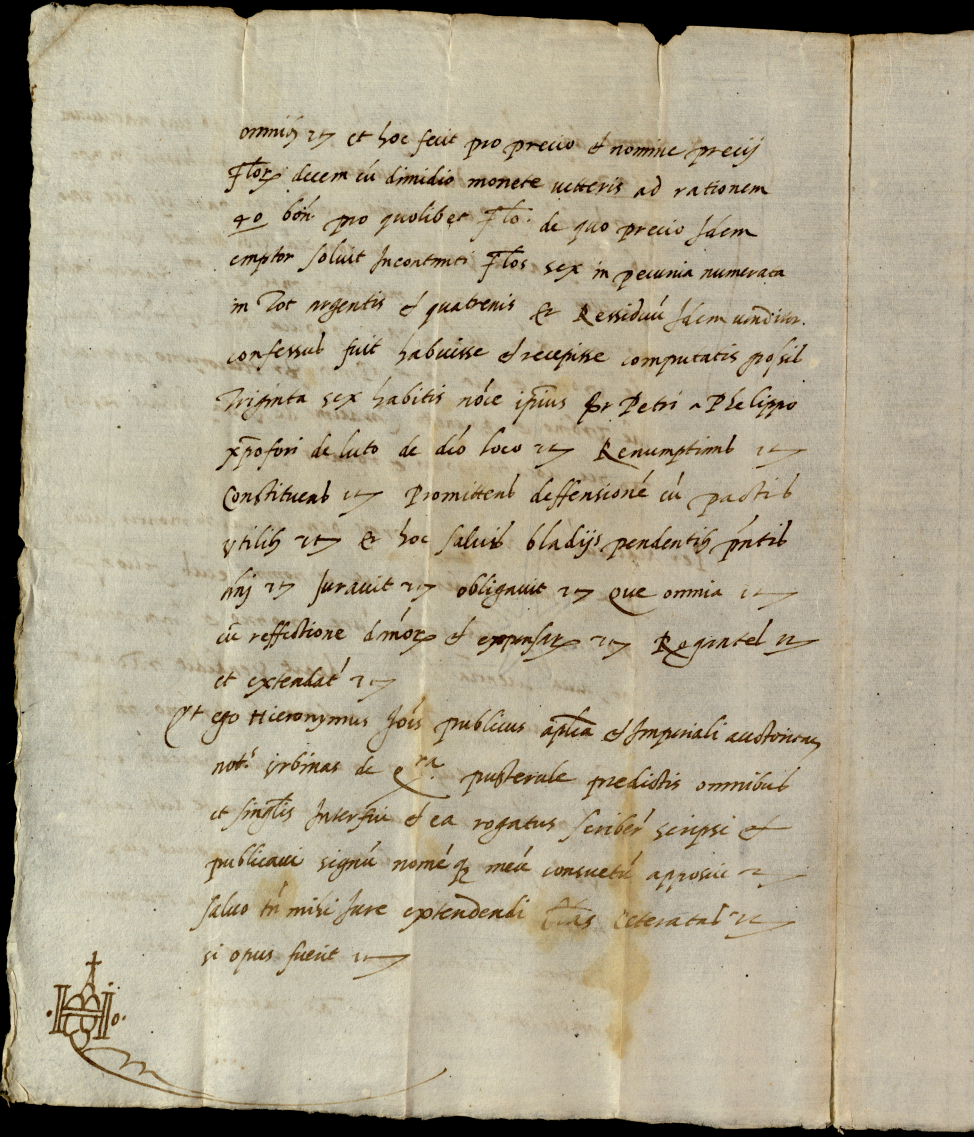 omniū etc et hoc fecit pro precio & nomine precij
Flor decem cū dimidio monete vetteris ad rationem
40 boń pro quolibet Flo. de quo precio Idem
emptor soluit Incontinēti Flos sex in pecunia numerata
in Tot argentis & quatrenis & Ressiduū Idem venditor.
confessus fuit habuisse & recepisse computatis
Triginta sex habitis nōie ipsius Petri a Phelippo
xp̄ofori de luto de dco loco etc Renumptians etc
Constituens etc Promittens deffensionē cū pactis
vtilibꝫ etc & hoc saluis bladijs pendentibꝫ pn̄tis
anj etc Jurauit etc obligauit etc Que omnia etc
cū reffictione dmōꝝ & expensaꝝ etc Rogantes etc
et extendat etc
Et ego Hieronymus Joīs publicus aplīca & Imperiali auctoritate
not.s vrbinas de qra pusterule predictis omnibus
et singlis Interfui & ea rogatus scriber scripsi &
publicaui signū nomē qꝫ meū consuetū apposui etc
saluo tn̄ mihi Jure extendendi ceteratas etc
si opus fuerit etc